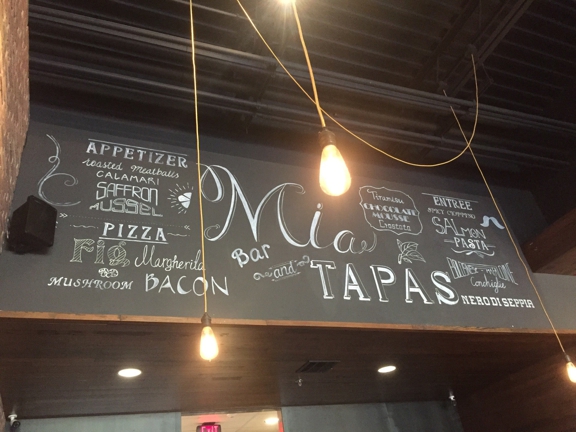 APPETIZER
roasted meatballs
CALAMARI
SAFFRON
MUSSEL
PIZZA
fig
Margherita
MUSHROOM
BACON
Mia
Bar
and
TAPAS
Tiramisu
CHOCOLATE
MOUSSE
ENTREE
SALMON
PASTA
Conchiglie
NERO DI SEPPIA
EXIT